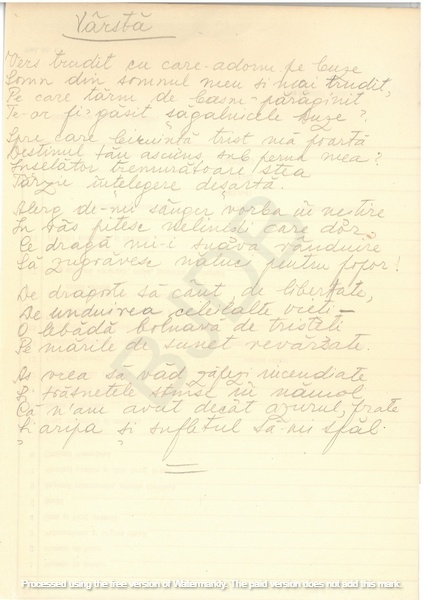 Vârstă
Vers trudit cu care adorm pe buze
Somn din somnul meu si mai trudit,
Pe care tărm de basm părăginit
Te-or fi găsit săgalnicele buze?
Spre care biruintă trist mă poartă
Destinul tău ascuns sub perna mea?
Inselător tremurătoare stea
Târzie întelegere desartă.
Alerg de-mi sânger vorba în nestire
În râs pitesc nelinisti care dor
Ce dragă mi-i suava
Să zugrăvesc năluci pentru popor!
De dragoste să cânt, de libertate,
De unduirea celeilalte vieti –
O lebădă bolnavă de tristeti
Pe mările de sunet revărsate.
As vrea să văd incendiate
Si trăsnetele stinse în nămol
Că n'am avut decât azurul, frate
Si aripa si sufletul să-mi
BUDB
Processed using the free version of Watermarkly. The paid version does not add this mark.